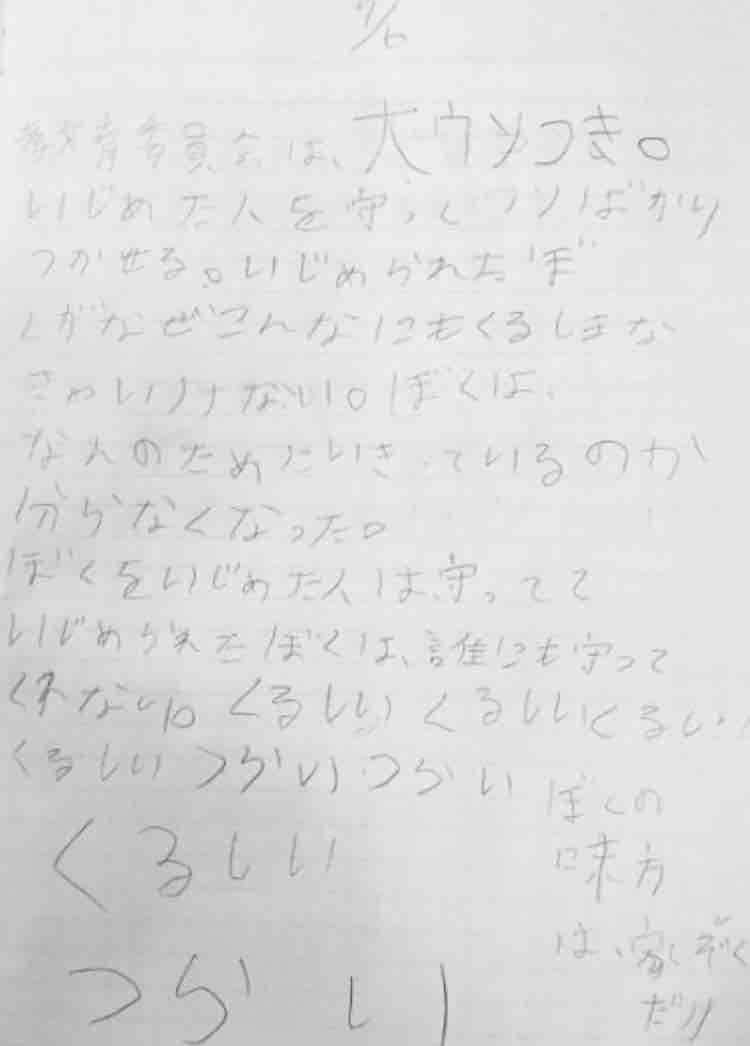 9/6
教育委員会は、大ウソつき。
いじめた人を守ってウソばかり
つかせる。いじめられたぼ
くがなぜこんなにもくるしまな
きゃいけない。ぼくは、
なんのためにいきているのか
分らなくなった。
ぼくをいじめた人は守ってて
いじめられたぼくは、誰にも守って
くれない。くるしい くるしい くるしい
くるしい つらい つらい
くるしい
つらい
ぼくの
味方
は、家ぞく
だけ